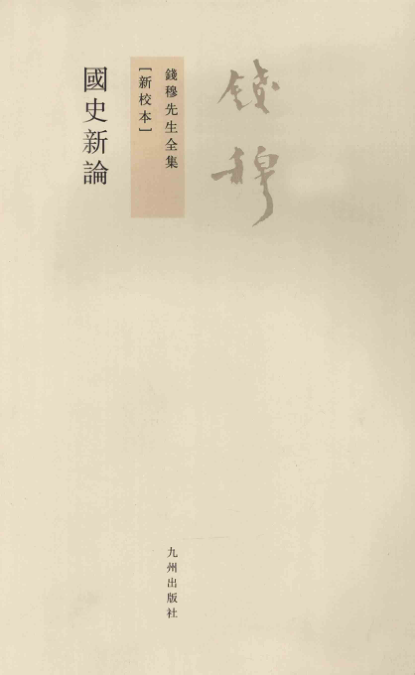 錢穆
錢穆先生全集
[新校本]
國史新論
九州出版社